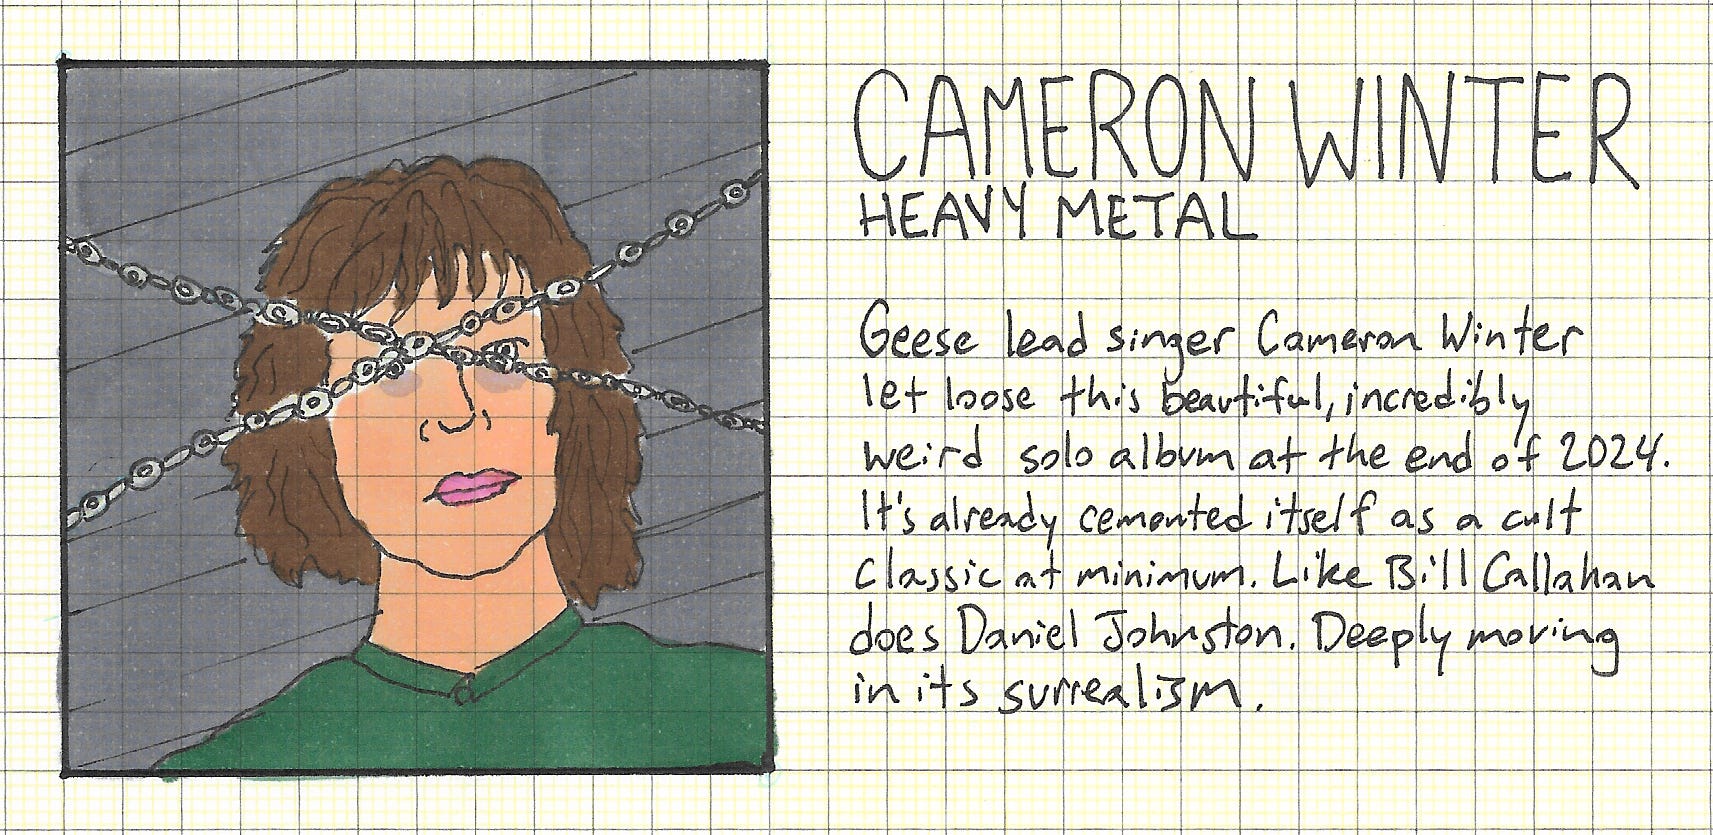 CAMERON WINTER
HEAVY METAL
Geese lead singer Cameron Winter
let loose this beautiful, incredibly
weird solo album at the end of 2024.
It's already cemented itself as a cult
classic at minimum. Like Bill Callahan
does Daniel Johnston. Deeply moving
in its surrealism.